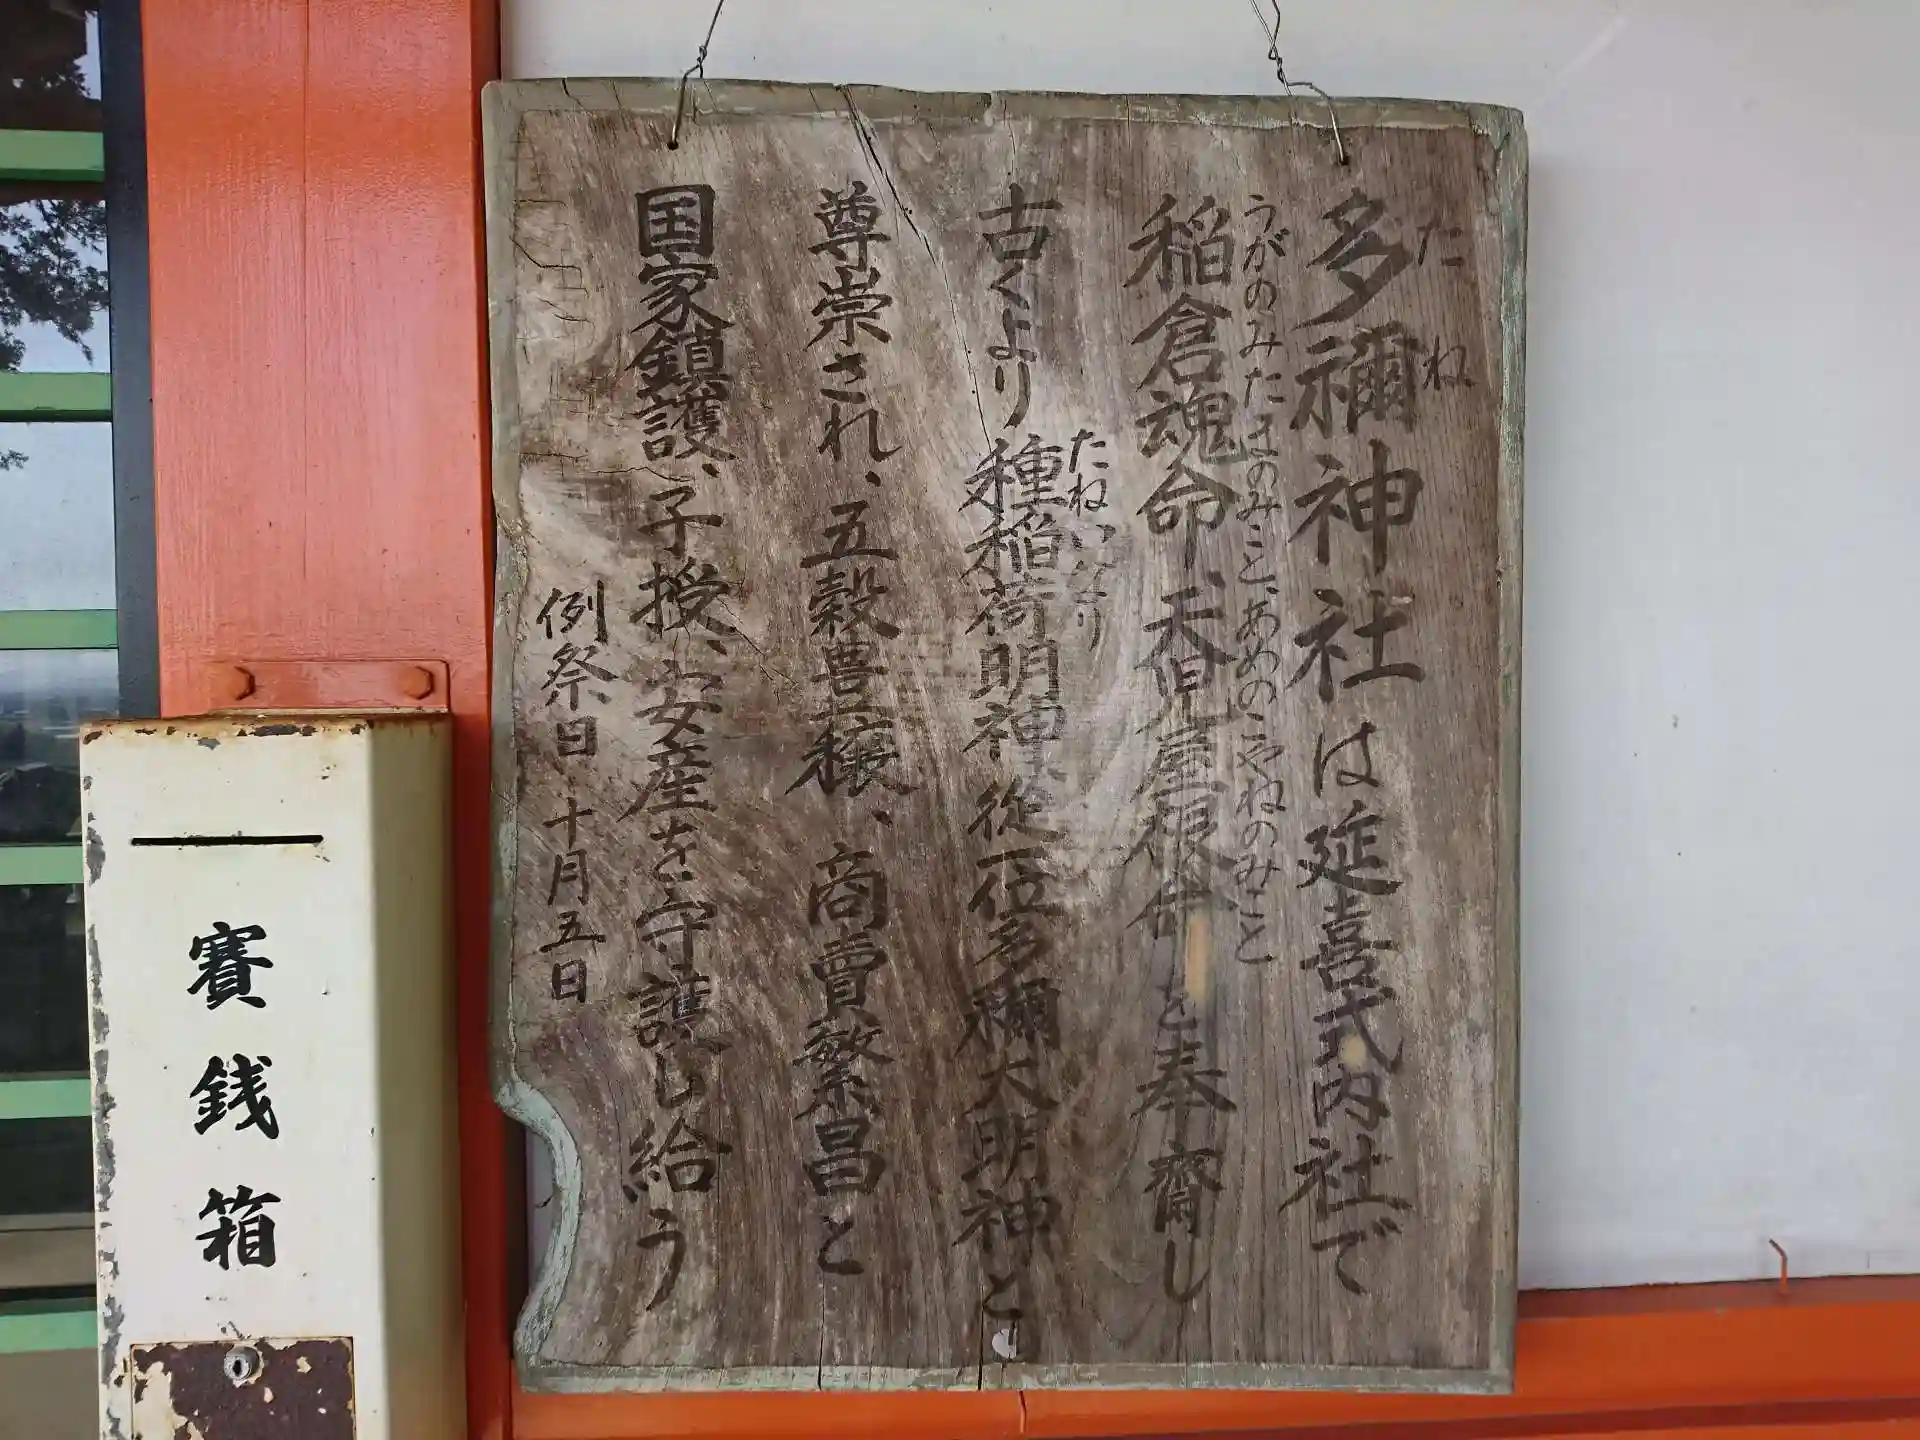 多禰神社は延喜式内社で
たね
稲倉魂命、天児屋根命を奉齋し
うがのみたまのみこと、あめのこやねのみこと
古くより種稲荷明神、従一位多禰大明神と
たねいなり
尊崇され、五穀豊穣、商賣繁昌と
国家鎮護、子授、安産を守護し給う
例祭日 十月五日
賽銭箱